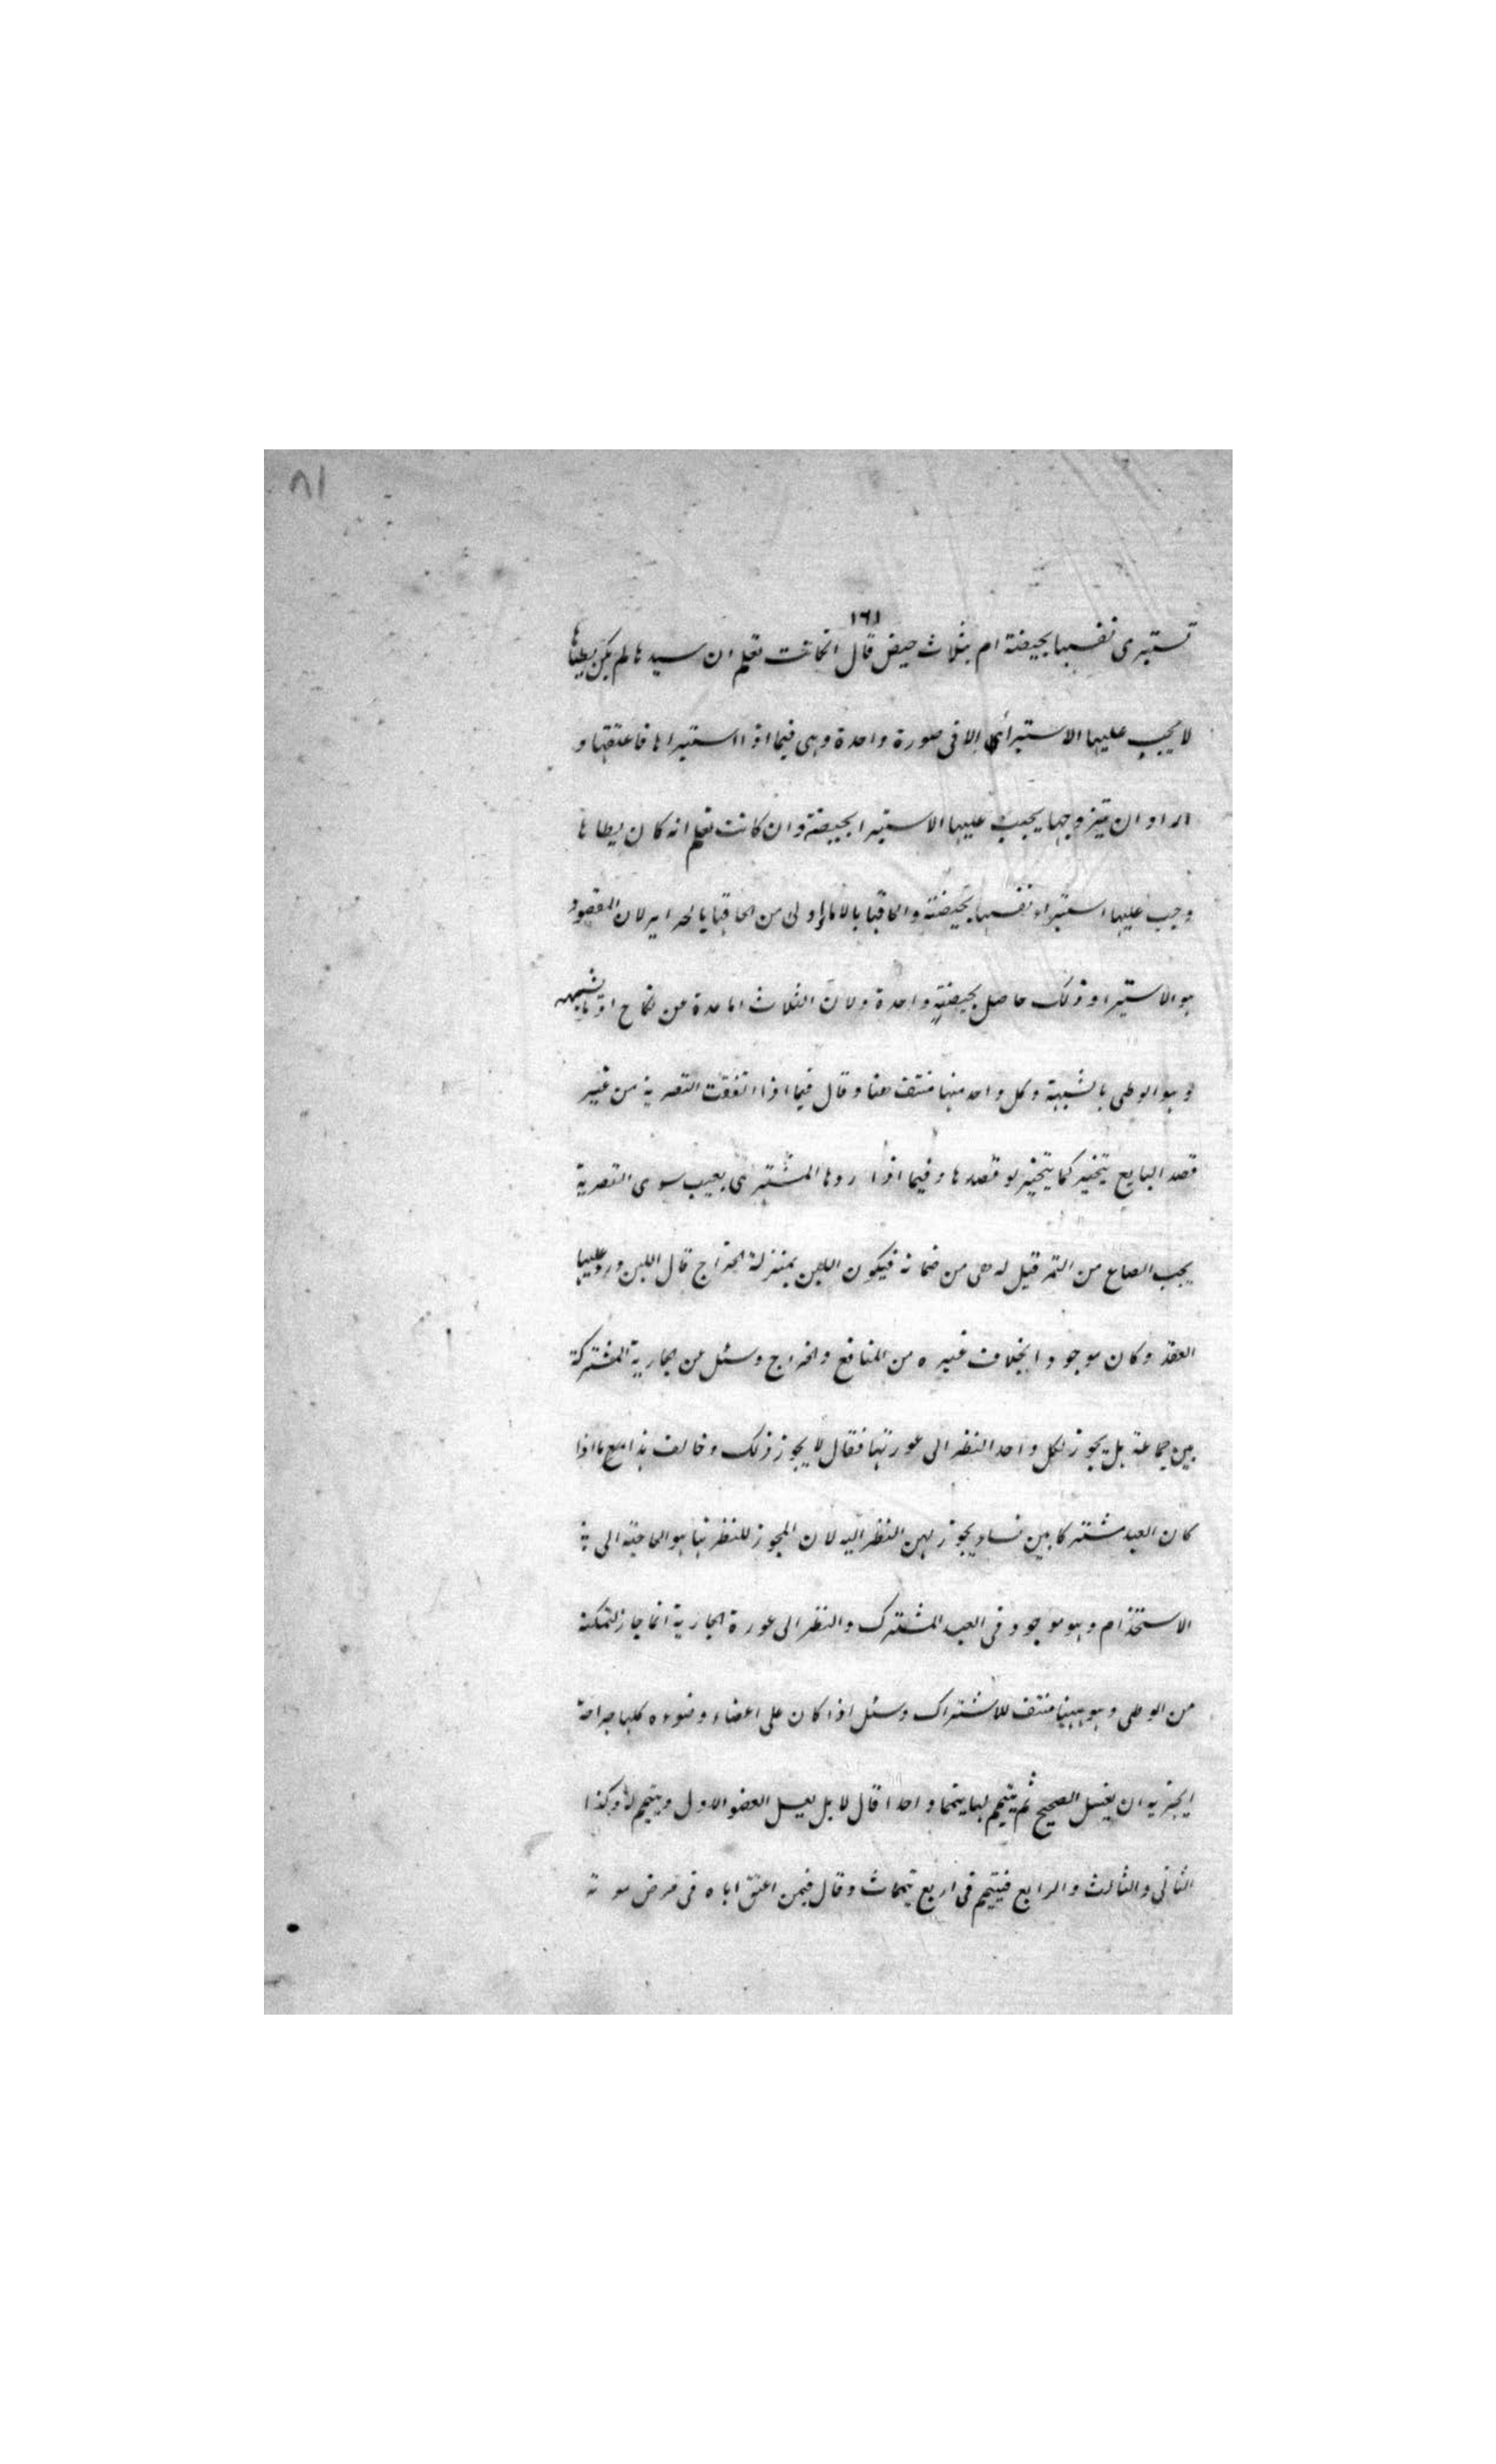 ٨١
١٦١
تستبرى نفسها بحيضة ام بثلاث حيض قال انكانت تعلم ان سيدها لم يكن يطاها
لا يجب عليها الاستبراء الا فى صورة واحدة وهى فيما اذا استبراها فاعتقها و
اراد ان يتزوجها يجب عليها الاستبرا بحيضة وان كانت تعلم انه كان يطاها
وجب عليها استبراء نفسها بحيضة والحاقها بالاماء اولى من الحاقها بالحراير لان المقصود
هو الاستبرا وذلك حاصل بحيضة واحدة ولان الثلاث اما عدة من نكاح او ما يشبهه
و هو الوطى بالشبهة وكل واحد منهما منتف هنا وقال فيما اذا اتفقت التصرية من غير
قصد البايع يتخير كما يتخير لو قصدها وفيما اذا ردها المشترى بعيب سوى التصرية
يجب الصاع من التمر قيل له هى من ضمانه فيكون اللبن بمنزلة الخراج قال اللبن ورد عليها
العقد وكان موجودا بخلاف غيره من المنافع والخراج وسئل عن الجارية المشتركة
بين جماعة هل يجوز لكل واحد النظر الى عورتها فقال لا يجوز ذلك وخالف هذا مع ما اذا
كان العبد مشتركا بين نساء يجوز لهن النظر اليه لان المجوز للنظر ثمة هو الحاجة الى
الاستخدام وهو موجود فى العبد المشترك والنظر الى عورة الجارية انما جاز لتمكنه
من الوطى وهو ههنا منتف للاشتراك وسئل اذا كان على اعضاء وضوءه كلها جراحة
ايجزيه ان يغسل الصحيح ثم يتيمم لها تيمما واحدا قال لا بل يغسل العضو الاول ويتيمم له وكذا
الثانى والثالث والرابع فيتيمم فى اربع تيممات وقال فيمن اعتق اباه فى مرض موته